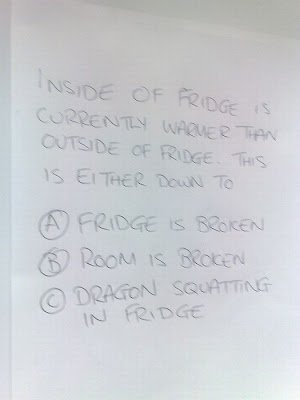 INSIDE OF FRIDGE IS
CURRENTLY WARMER THAN
OUTSIDE OF FRIDGE. THIS
IS EITHER DOWN TO
Ⓐ FRIDGE IS BROKEN
Ⓑ ROOM IS BROKEN
Ⓒ DRAGON SQUATTING
IN FRIDGE